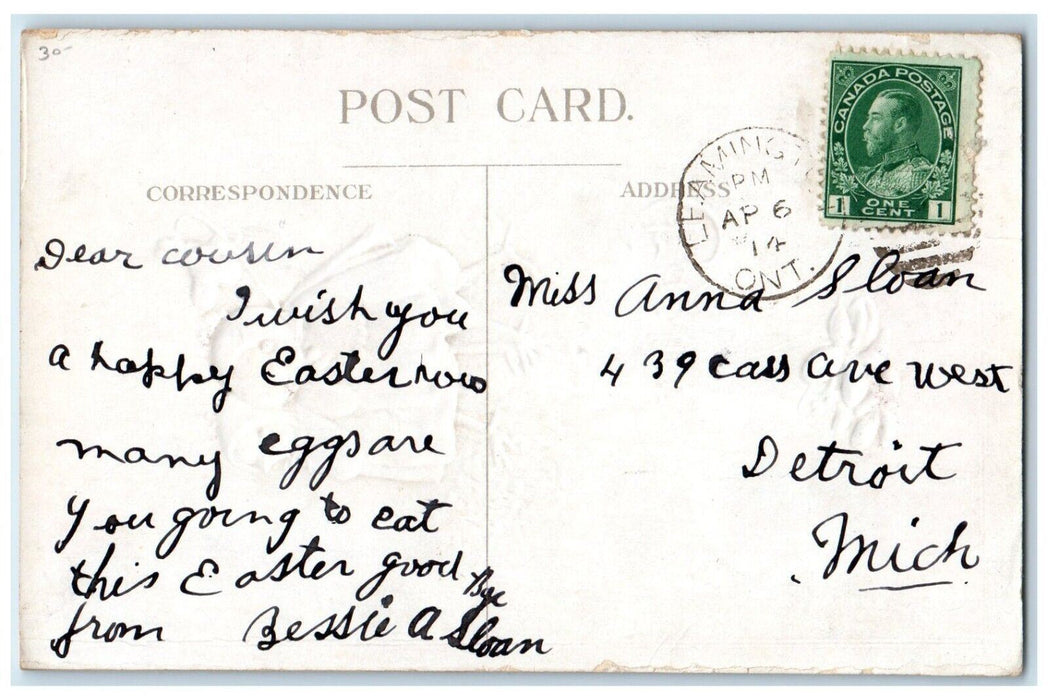 30-
POST CARD.
CORRESPONDENCE
ADDRESS
CANADA POSTAGE
1 ONE CENT 1
LEAMINGTON
PM
AP 6
14
ONT.
Dear cousin
I wish you
a happy Easter how
many eggs are
you going to eat
this Easter good Bye
from Bessie A Sloan
Miss Anna Sloan
439 Cass Ave West
Detroit
Mich